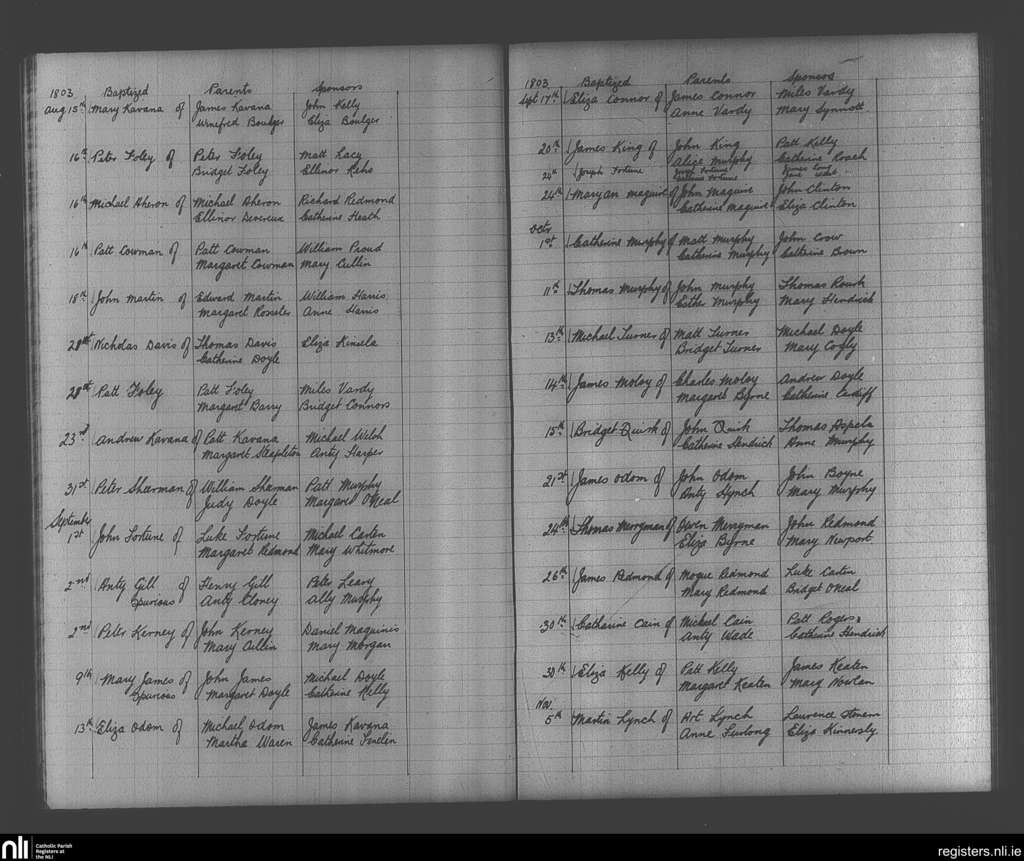 1803 Baptized Parents Sponsors
Aug 15th Mary Kavana of James Kavana John Kelly
Winefred Boulger Eliza Boulger
16th Peter Foley of Peter Foley Matt Lacy
Bridget Foley Ellinor Keho
16th Michael Aheron of Michael Aheron Richard Redmond
Ellinor Devereux Catherine Heath
16th Patt Cowman of Patt Cowman William Proud
Margaret Cowman Mary Cullin
18th John Martin of Edward Martin William Harris
Margaret Rossiter Anne Harris
28th Nicholas Davis of Thomas Davis Eliza Kinsela
Catherine Doyle
28th Patt Foley Patt Foley Miles Vardy
Margaret Barry Bridget Connors
23rd Andrew Kavana of Patt Kavana Michael Welsh
Margaret Stapleton Anty Harper
31st Peter Sharman of William Sharman Patt Murphy
Judy Doyle Margaret ONeal
September
1st John Fortune of Luke Fortune Michael Carten
Margaret Redmond Mary Whitmore
2nd Anty Gill of Henry Gill Peter Leary
Spurious Anty Cloney Ally Murphy
2nd Peter Kerney of John Kerney Daniel Maguinis
Mary Cullin Mary Morgan
9th Mary James of John James Michael Doyle
Spurious Margaret Doyle Catherine Kelly
13th Eliza Odom of Michael Odom James Kavana
Martha Waren Catherine
1803 Baptized Parents Sponsors
Sept 17th Eliza Connor of James Connor Miles Vardy
Anne Vardy Mary Synnott
20th James King of John King Patt Kelly
Alice Murphy Catherine Roach
24th Joseph Fortune Joseph Fortune
Fortune Jane
24th Maryan Maguire of John Maguire John Clinton
Catherine Maguire Eliza Clinton
Octr
1st Catherine Murphy of Matt Murphy John Crow
Catherine Murphy Catherine Brown
11th Thomas Murphy of John Murphy Thomas Rourk
Esther Murphy Mary Hendrick
13th Michael Turner of Matt Turner Michael Doyle
Bridget Turner Mary Cogly
14th James Moloy of Charles Moloy Andrew Doyle
Margaret Byrne Catherine Cardiff
15th Bridget Quirk of John Quirk Thomas Aspela
Catherine Hendrick Anne Murphy
21st James Odom of John Odom John Boyne
Anty Hynch Mary Murphy
24th Thomas Merryman of Owen Merryman John Redmond
Eliza Byrne Mary Newport
26th James Redmond of Mogue Redmond Luke Carten
Mary Redmond Bridget ONeal
30th Catharine Cain of Michael Cain Patt Rogers
Anty Wade Catherine Hendrick
30th Eliza Kelly of Patt Kelly James Keaten
Margaret Keaten Mary Nowlan
Nov
5th Martin Lynch of Art Lynch Laurence
Anne Furlong Eliza Kinnersly
nli Catholic Parish
Registers at
the NLI
registers.nli.ie